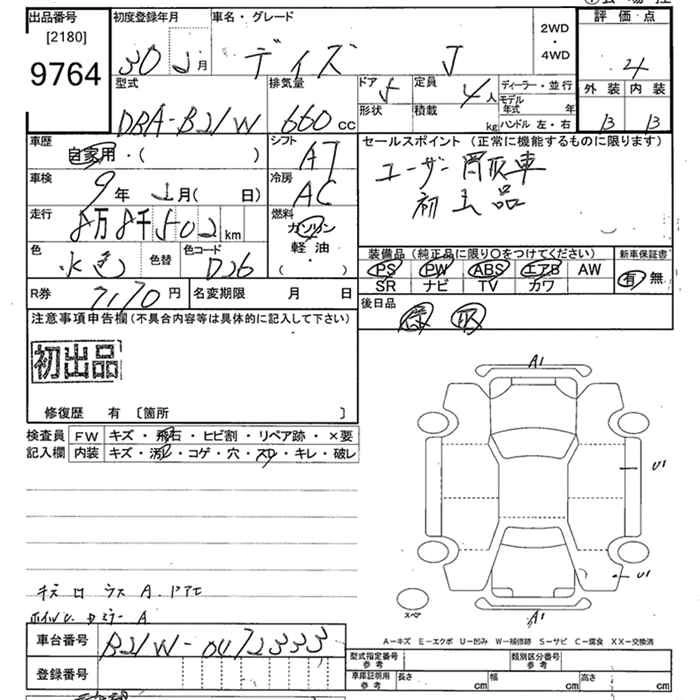 出品番号 初度登録年月 車名・グレード 評価点
[2180]
9764
30 年 2月 デイズ J 2WD・4WD 4
型式 排気量 ドア 5 定員 4人 ディーラー・並行 外装 内装
DBA-B21W 660cc 形状 積載 kg モデル年式 年 B B
ハンドル 左・右
車歴 シフト セールスポイント (正常に機能するものに限ります)
自家用・( ) AT ユーザー買取車
車検 冷房 初出品
9年 2月( 日) AC
走行 燃料
8万8千502km ガソリン
軽油
色 色替 色コード ・( )
水色 D26
装備品 (純正品に限り○をつけてください) 新車保証書
PS PW ABS エアB AW 有 無
SR ナビ TV カワ
R券 7170円 名変期限 月 日
後日品
注意事項申告欄(不具合内容等は具体的に記入して下さい)
初出品
修復歴 有 〔箇所 〕
検査員 FW キズ・飛石・ヒビ割・リペア跡・×要
記入欄 内装 キズ・汚レ・コゲ・穴・スリ・キレ・破レ
A1
U1
U1
スペア
A1
A-キズ E-エクボ U-凹み W-補修跡 S-サビ C-腐食 XX-交換済
車台番号 B21W-0472333
登録番号
型式指定番号 参考 類別区分番号 参考
車庫証明用 参考 長さ cm 幅 cm 高さ cm